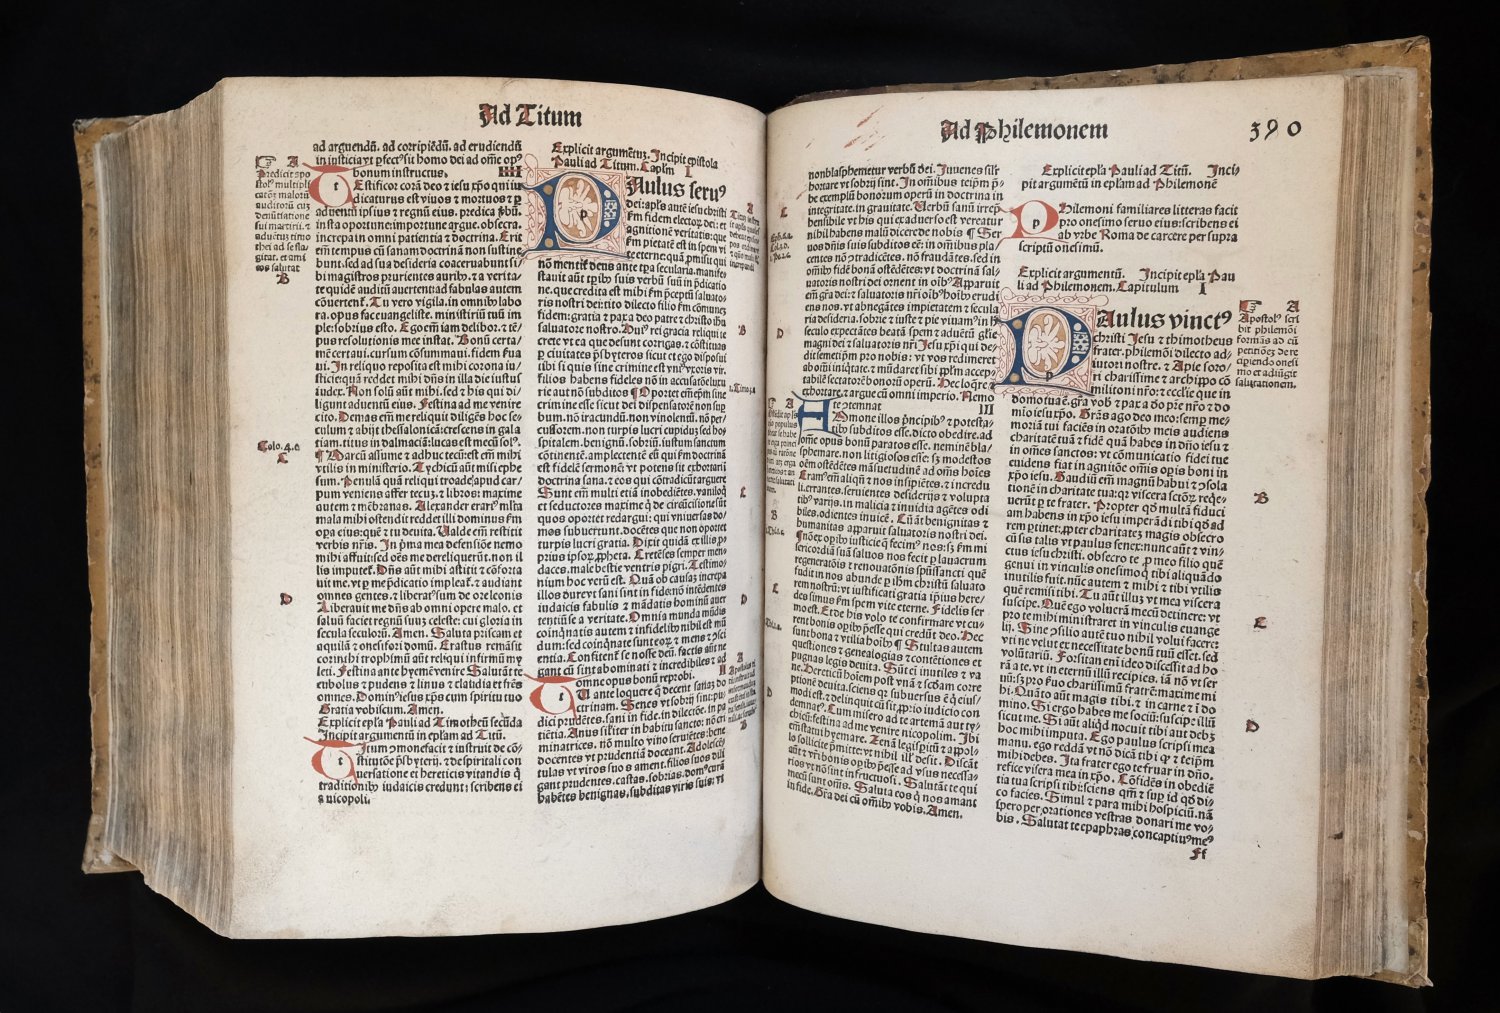 Ad Titum
ad arguendū. ad corripiēdū. ad erudiendū
in iusticia: vt pfect⁹ sit homo dei ad oē̄ op⁹
bonum instructus. IIII
TEstificor corā deo ⁊ iesu xp̄o qui iu-
dicaturus est viuos ⁊ mortuos ⁊ ꝑ
aduentū ipsius ⁊ regnū eius. predica ꝟbū.
insta oportune: importune: argue. obsecra.
increpa in omni patientia ⁊ doctrina. Erit
em̄ tempus cū sanam doctrinā non sustine
bunt. sed ad sua desideria coaceruabunt si⁊
bi magistros prurientes aurib⁹. ⁊ a verita⁊
te quidē auditū auertent: ad fabulas autem
cōuertent. Tu vero vigila. in omnib⁹ labo
ra. opus fac euangeliste. ministeriū tuū im
ple: sobrius esto. Ego em̄ iam delibor. ⁊ tē⁊
pus resolutionis mee instat. Bonū certa⁊
mē certaui. cursum cōsummaui. fidem ẜua
ui. In reliquo reposita est mihi corona iu⁊
sticie: quā reddet mihi dn̄s in illa die iustus
iudex. Non solū aūt mihi. sed ⁊ his qui di⁊
ligunt aduentū eius. Festina ad me venire
cito. Demas em̄ me reliquit diligēs hoc se⁊
culum ⁊ abijt thessalonicā: crescens in gala
tiam. titus in dalmaciā: lucas est mecū sol⁹.
¶ Marcū assume ⁊ adduc tecū: est em̄ mihi
vtilis in ministerio. Tychicū aūt misi ephe
sum. Penulā quā reliqui troade apud car⁊
pum veniens affer tecū. ⁊ libros: maxime
autem ⁊ mēbranas. Alexander erari⁹ mlta
mala mihi ostendit: reddet illi dominus ẜm
opa eius: quē ⁊ tu deuita. Ualde em̄ restitit
verbis nr̄is. In pͥma mea defensiōe nemo
mihi affuit: sed oēs me dereliquerūt. non il
lis imputet. Dn̄s aūt mihi astitit ⁊ cōforta
uit me. vt ꝑ me p̄dicatio impleat. ⁊ audiant
omnes gentes. ⁊ liberat⁹ sum de ore leonis
Liberauit me dn̄s ab omni opere malo. et
saluū faciet regnū suū celeste: cui gloria in
secula seculoꝝ. Amen. Saluta priscam et
aquilā ⁊ onesifori domū. Erastus remāsit
corinthi. trophimū aūt reliqui infirmū my
leti. Festina ante hyemē venire. Salutāt te
eubolus ⁊ pudens ⁊ linus ⁊ claudia et fr̄es
omnes. Domin⁹ iesus xp̄s cum spiritu tuo
Gratia vobiscum. Amen.
Explicit epl̄a Pauli ad Timotheū secūda
Incipit argumentū in epl̄am ad Titū.
TItum ꝯmonefacit ⁊ instruit de cō⁊
stitutiōe p̄sbyterij. ⁊ de spiritali con
uersatione et hereticis vitandis q̄
traditionib⁹ iudaicis credunt: scribens ei
a nicopoli.
Predicit apo
stol⁹ multipli
catōꝫ maloꝝ
auditorū cuꝫ
denūtiatione
sui martirij. ⁊
aduētuꝫ timo
thei ad se fla⁊
gitat. et ami⁊
cos salutat
A
B
Colo.4.c
C
D
Explicit argumētuꝫ. Incipit epistola
Pauli ad Titum. Caplm̄ I
PAulus seru⁹
dei: apls̄ aūt iesu christi
ẜm fidem electoꝝ dei: et
agnitionē veritatis: que
ẜm pietatē est in spem vi
te eterne: quā ꝓmisit qui
nō mentit̄ deus ante tpa secularia. manifes
stauit aūt tꝑib⁹ suis verbū suū in p̄dicatio
ne. que credita est mihi ẜm p̄ceptū saluato⁊
ris nostri dei: tito dilecto filio ẜm cōmuneꝫ
fidem: gratia ⁊ pax a deo patre ⁊ christo ihū
saluatore nostro. Hui⁹ rei gracia reliqui te
crete vt ea que desunt corrigas. ⁊ cōstituas
ꝑ ciuitates p̄sbyteros sicut et ego disposui
tibi: si quis sine crimine est: vni⁹ vxoris vir.
filios habens fideles nō in accusatōe luxu
rie aut nō subditos ¶ Oportet em̄ ep̄m sine
crimine esse sicut dei dispensatorē: non suꝑ
bum. nō iracundū. non vinolentū. nō per⁊
cussorem. non turpis lucri cupiduꝫ: sed ho⁊
spitalem. benignū. sobriū. iustum: sanctum
cōtinentē. amplectentē eū qui ẜm doctrinā
est fidelē sermonē: vt potens sit exhortari ī
doctrina sana. ⁊ eos qui cōtradicūt arguere
Sunt em̄ multi etiā inobediētes. vaniloq̄
et seductores: maxime q̄ de circūcisione sūt
quos oportet redargui: qui vniuersas do⁊
mos subuertunt. docētes que non oportet
turpis lucri gratia. Dixit quidā ex illis pro
prius ipsoꝝ ꝓpheta. Cretēses semper men⁊
daces. male bestie ventris pigri. Testimo⁊
nium hoc verū est. Quā ob causaꝫ increpa
illos dure: vt sani sint in fide: nō intēdentes
iudaicis fabulis ⁊ mādatis hominū auer
tentiū se a veritate. Omnia munda mūdis
coinq̄natis autem ⁊ infidelib⁹ nihil est mū
dum: sed coinq̄nate sunt eoꝝ ⁊ mens ⁊ ꝯsci
entia. Confitent̄ se nosse deū. factis aūt ne
gant: cū sint abominati ⁊ incredibiles ⁊ ad
omne opus bonū reprobi. II
TU aūt loquere q̄ decent sanaꝫ do
ctrinam. Senes vt sobrij sint: pu⁊
dici. prudētes. sani in fide. in dilectiōe. in pa
tiētia. Anus sil̄iter in habitu sancto: nō cri
minatrices. nō multo vino seruiētes: bene
docentes: vt prudentiā doceant. Adolescē⁊
tulas: vt viros suos ament. filios suos dili
gant: prudentes. castas. sobrias. dom⁹ curā
habētes: benignas. subditas viris suis: vt
A
B
1.Timo.3.a
C
D
A
B
Ad Philemonem
390
non blasphemetur verbū dei. Iuuenes sil̄r
hortare vt sobrij sint. In omnibus teip̄m p̄⁊
be exemplū bonorum operū in doctrina in
integritate. in grauitate. Uerbū sanū irrep̄
hensibile: vt his qui ex aduerso est vereatur
nihil habens malū dicere de nobis ¶ Ser
uos dn̄is suis subditos eē: in oīmibus pla⁊
centes: nō ꝯtradicētes. nō fraudātes. sed in
oīmib⁹ fidē bonā ostēdētes: vt doctrinā sal⁊
uatoris nostri dei ornent in oīb⁹ Apparuit
em̄ gr̄a dei: ⁊ saluatoris nr̄i oīb⁹ hoīb⁹ erudi
ens nos. vt abnegātes impietatem ⁊ secula
ria desideria. sobrie ⁊ iuste ⁊ pie viuam⁹ in h̄
seculo expectātes beatā spem ⁊ aduētū gl̄ie
magni dei ⁊ saluatoris nr̄i Iesu xp̄i qui de⁊
dit semetip̄m pro nobis: vt vos redimeret
ab oīmi iniq̄tate. ⁊ mūdaret sibi pp̄lm accep⁊
tabilē sectatorē bonorū operū. Hec loq̄re ⁊
exhortare. ⁊ argue cū omni imperio. Nemo
te ꝯtemnat III
ADmone illos pͥncipib⁹ ⁊ potesta⁊
tib⁹ subditos esse. dicto obedire. ad
ōme opus bonū paratos esse. neminē bla⁊
sphemare. non litigiosos esse: sꝫ modestos
oēm ostēdētes māsuetudinē ad oēs hoīes
Eram⁹ em̄ aliqn̄ ⁊ nos insipiētes. ⁊ incredu
li. errantes. seruientes desiderijs ⁊ volupta
tib⁹ varijs. in malicia ⁊ inuidia agētes odi
biles. odientes inuicē. Cū aūt benignitas ⁊
humanitas apparuit saluatoris nostri dei.
Nō ex oꝑib⁹ iusticie q̄ fecim⁹ nos: sꝫ ẜm mi
sericordiā suā saluos nos fecit ꝑ lauacrum
regeneratōis ⁊ renouatōnis spūssancti quē
fudit in nos abunde ꝑ ihm̄ christū saluato
rem nostrū: vt iustificati gratia ipsius here⁊
des simus ẜm spem vite eterne. Fidelis ser
mo est. Et de his volo te confirmare vt cu⁊
rent bonis oꝑib⁹ p̄esse qui credūt deo. Hec
sunt bona ⁊ vtilia hoīb⁹ ¶ Stultas autem
questiones ⁊ genealogias ⁊ contētiones et
pugnas legis deuita. Sūt eī inutiles ⁊ va
ne. Hereticū hoīem post vnā ⁊ scdam corre
ptionē deuita. sciens q̄ subuersus ē q̄ eius⁊
modi est. ⁊ delinquit cū sit ꝓprio iudicio con
demnat⁹. Cum misero ad te artemā aut ty⁊
chicū: festina ad me venire nicopolim. Ibi
em̄ statui hyemare. Zenā legisꝑitū ⁊ appol⁊
lo sollicite p̄mitte: vt nihil ill̄ desit. Discāt
aūt ⁊ nr̄i bonis oꝑib⁹ p̄esse ad vsus necessa⁊
rios: vt nō sint infructuosi. Salutāt te qui
mecū sunt om̄s. Saluta eos q̄ nos amant
in fide. Gr̄a dei cū om̄ib⁹ vobis. Amen.
C
D
A
B
C
D
Explicit epl̄a Pauli ad Titū. Inci⁊
pit argumētū in epl̄am ad Philemonē
PHilemoni familiares litteras facit
pro onesimo seruo eius: scribens ei
ab vrbe Roma de carcere per supra
scriptū onesimū.
Explicit argumentū. Incipit epl̄a Pau
li ad Philemonem. Capitulum I
PAulus vinct⁹
christi Iesu ⁊ thimotheus
frater. philemōi dilecto ad⁊
iutori nostre. ⁊ Apie soro⁊
ri charissime ⁊ archippo cō
militoni nr̄o: ⁊ ecclīe que in
domo tua ē. gr̄a vob̄ ⁊ pax a deo p̄re nr̄o ⁊ do
mīo iesu xp̄o. Gr̄as ago deo meo: semꝑ me⁊
moriā tui faciēs in oratōib⁹ meis audiens
charitatē tuā ⁊ fidē quā habes in dn̄o iesu ⁊
in oēs sanctos: vt cōmunicatio fidei tue
euidens fiat in agnitiōe oīmis oꝑis boni in
xp̄o iesu. Gaudiū em̄ magnū habui ⁊ ꝯsola
tionē in charitate tua: q̄ viscera sctōꝝ req̄e⁊
uerūt ꝑ te frater. Propter qd̄ multā fiduci
am habens in xp̄o iesu imperādi tibi qd̄ ad
rem ꝑtinet: ꝓpter charitateꝫ magis obsecro
cū sis talis vt paulus senex: nunc aūt ⁊ vin⁊
ctus iesu christi. obsecro te ꝓ meo filio quē
genui in vinculis onesimo: q̄ tibi aliquādo
inutilis fuit. nūc autem ⁊ mihi ⁊ tibi vtilis
quē remisi tibi. Tu aūt illuꝫ vt mea viscera
suscipe. Quē ego volueram mecū detinere: vt
pro te mihi ministraret in vinculis euange
lij. Sine ꝯsilio autē tuo nihil volui facere:
vti ne velut ex necessitate bonū tuū esset. sed
volūtariū. Forsitan eni ideo discessit ad ho
rā a te. vt in eternū illū recipies. iā nō vt ser
uū: sꝫ pro ẜuo charissimū fratrē: maxime mi
hi. Quāto aūt magis tibi. ⁊ in carne ⁊ ī do
mino. Si ergo habes me sociū: suscipe illū
sicut me. Si aūt aliqd̄ nocuit tibi aut debꝫ
hoc mihi imputa. Ego paulus scripsi mea
manu. ego reddā. vt nō dicā tibi q̄ ⁊ teip̄m
mihi debes. Ita frater ego te fruar in dn̄o.
refice viscera mea in xp̄o. Cōfidēs in obediē
tia tua scripsi tibi: sciens qm̄ ⁊ suꝑ id qd̄ di⁊
co facies. Simul ⁊ para mihi hospiciū. nā
spero per orationes vestras donari me vo⁊
bis. Salutat te epaphras concaptiu⁹ me⁹
A
Apostol⁹ scri
bit philemōi
formās ad cū
petitiōeꝫ de re
cipiendo onesi
mo et adiūgit
salutationem.
B
C
D
ff